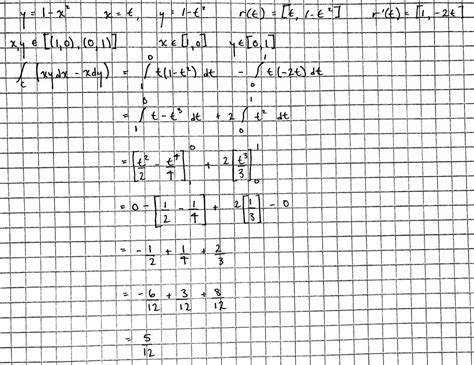 y = 1 - x² x = t, y = 1 - t² r(t) = [t, 1 - t²] r'(t) = [1, -2t]
x,y ∈ [(1,0), (0,1)] x ∈ [1,0] y ∈ [0,1]
∫_C (xy dx - x dy) = ∫_1^0 t(1 - t²) dt - ∫_0^1 t(-2t) dt
= ∫_1^0 t - t³ dt + 2 ∫_0^1 t² dt
= [t²/2 - t⁴/4]_1^0 + 2 [t³/3]_0^1
= 0 - [1/2 - 1/4] + 2[1/3] - 0
= -1/2 + 1/4 + 2/3
= -6/12 + 3/12 + 8/12
= 5/12